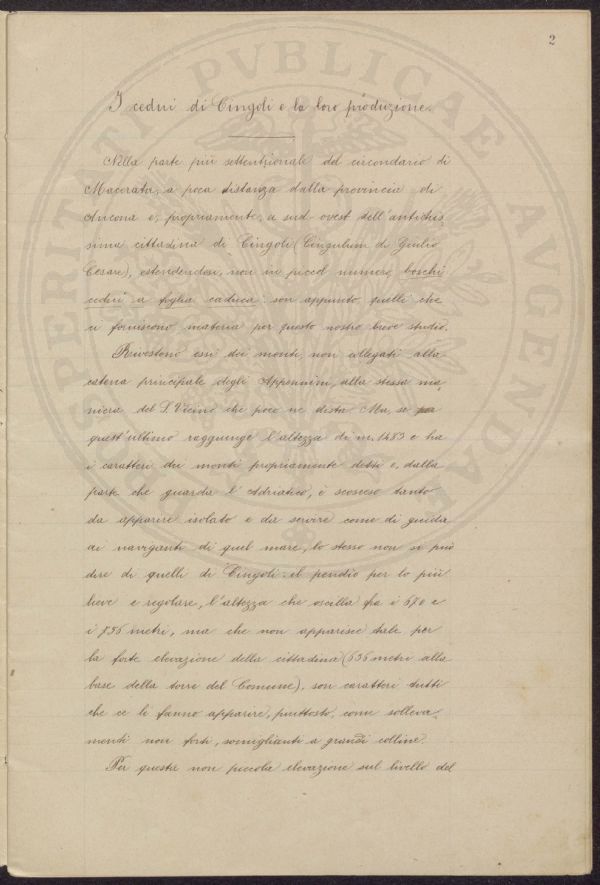 2
I cedui di Cingoli e la loro produzione.
Nella parte più settentrionale del circondario di
Macerata, a poca distanza dalla provincia di
Ancona e, propriamente, a sud-ovest dell'antichis-
sima cittadina di Cingoli (Cingulum di Giulio
Cesare), estendendosi, non in piccol numero, boschi
cedui a foglia caduca: son appunto quelli che
ci forniscono materia per questo nostro breve studio.
Rivestono essi dei monti, non collegati alla
catena principale degli Appennini, alla stessa ma-
niera del S. Vicino che poco ne dista. Ma, se
quest'ultimo raggiunge l'altezza di m. 1483 e ha
i caratteri dei monti propriamente detti e, dalla
parte che guarda l'Adriatico, è scosceso tanto
da apparire isolato e da servire come di guida
ai naviganti di quel mare, lo stesso non si può
dire di quelli di Cingoli: il pendio per lo più
lieve e regolare, l'altezza che oscilla fra i 670 e
i 836 metri, ma che non apparisce tale per
la forte elevazione della cittadina (636 metri alla
base della torre del Comune), son caratteri tutti
che ce li fanno apparire, piuttosto, come solleva-
menti non forti, somiglianti a grandi colline.
Per questa non piccola elevazione sul livello del
PROSPERITATI PVBLICAE AVGENDAE